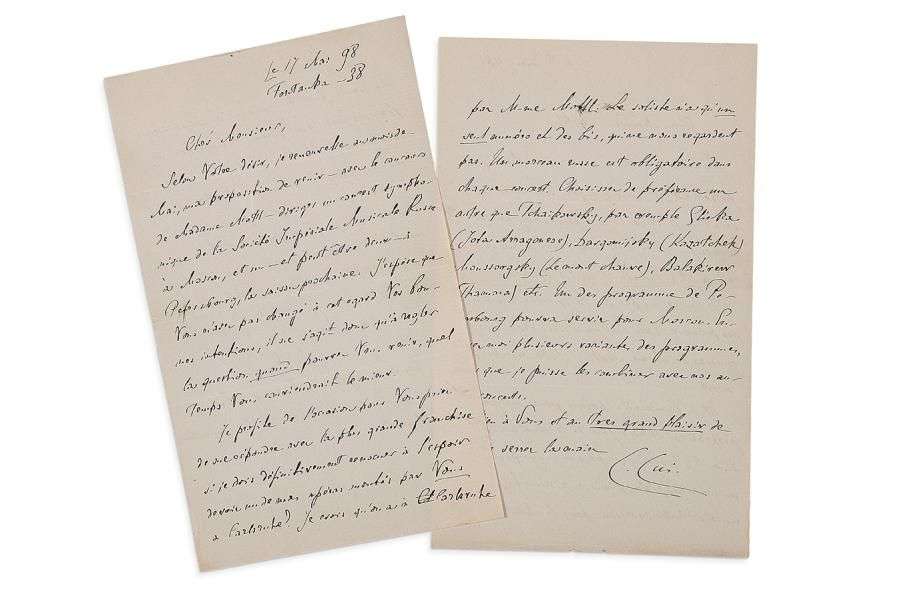 Le 17 Mai 98
Fontanka – 38
Cher Monsieur,
Selon Votre désir, je renouvelle au mois de
Mai, ma proposition de venir – avec le concours
de Madame Mottl – diriger un concert sympho-
nique de la Société Impériale Musicale Russe
à Moscou, et un – et peut être deux – à
Pétersbourg, la saison prochaine. J'espère que
Vous n'avez pas changé à cet égard Vos bon-
nes intentions, il ne s'agit donc qu'à regler
la question quand pourrez Vous venir, quel
temps Vous conviendrait le mieux.
Je profite de l'occasion pour Vous prier
de me répondre avec la plus grande franchise
si je dois définitivement renoncer à l'espoir
de voir un de mes opéras montés par Vous
à Carlsruhe? Je crois qu'on a à Carlsruhe
par M-me Mottl. Le soliste n'a qu'un
seul numéro et des bis, qui ne nous regardent
pas. Un morceau russe est obligatoire dans
chaque concert. Choisissez de préférence un
autre que Tchaïkovsky, par exemple Glinka
(Jota Aragonese), Dargomijsky (Kazatchek)
Moussorgsky (Le mont chauve), Balakirew
Thamara) etc. Un des programme de Pé-
rsbourg pourra servir pour Moscou.
moi plusieurs variantes des programmes,
que je puisse les combiner avec nos au-
concerts.
en à Vous et au tres grand plaisir de
serrer la main
C. Cui.